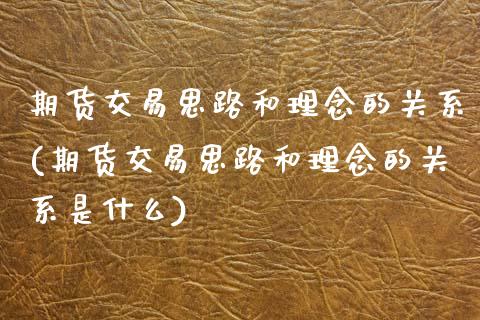 期货交易思路和理念的关系
(期货交易思路和理念的关
系是什么)